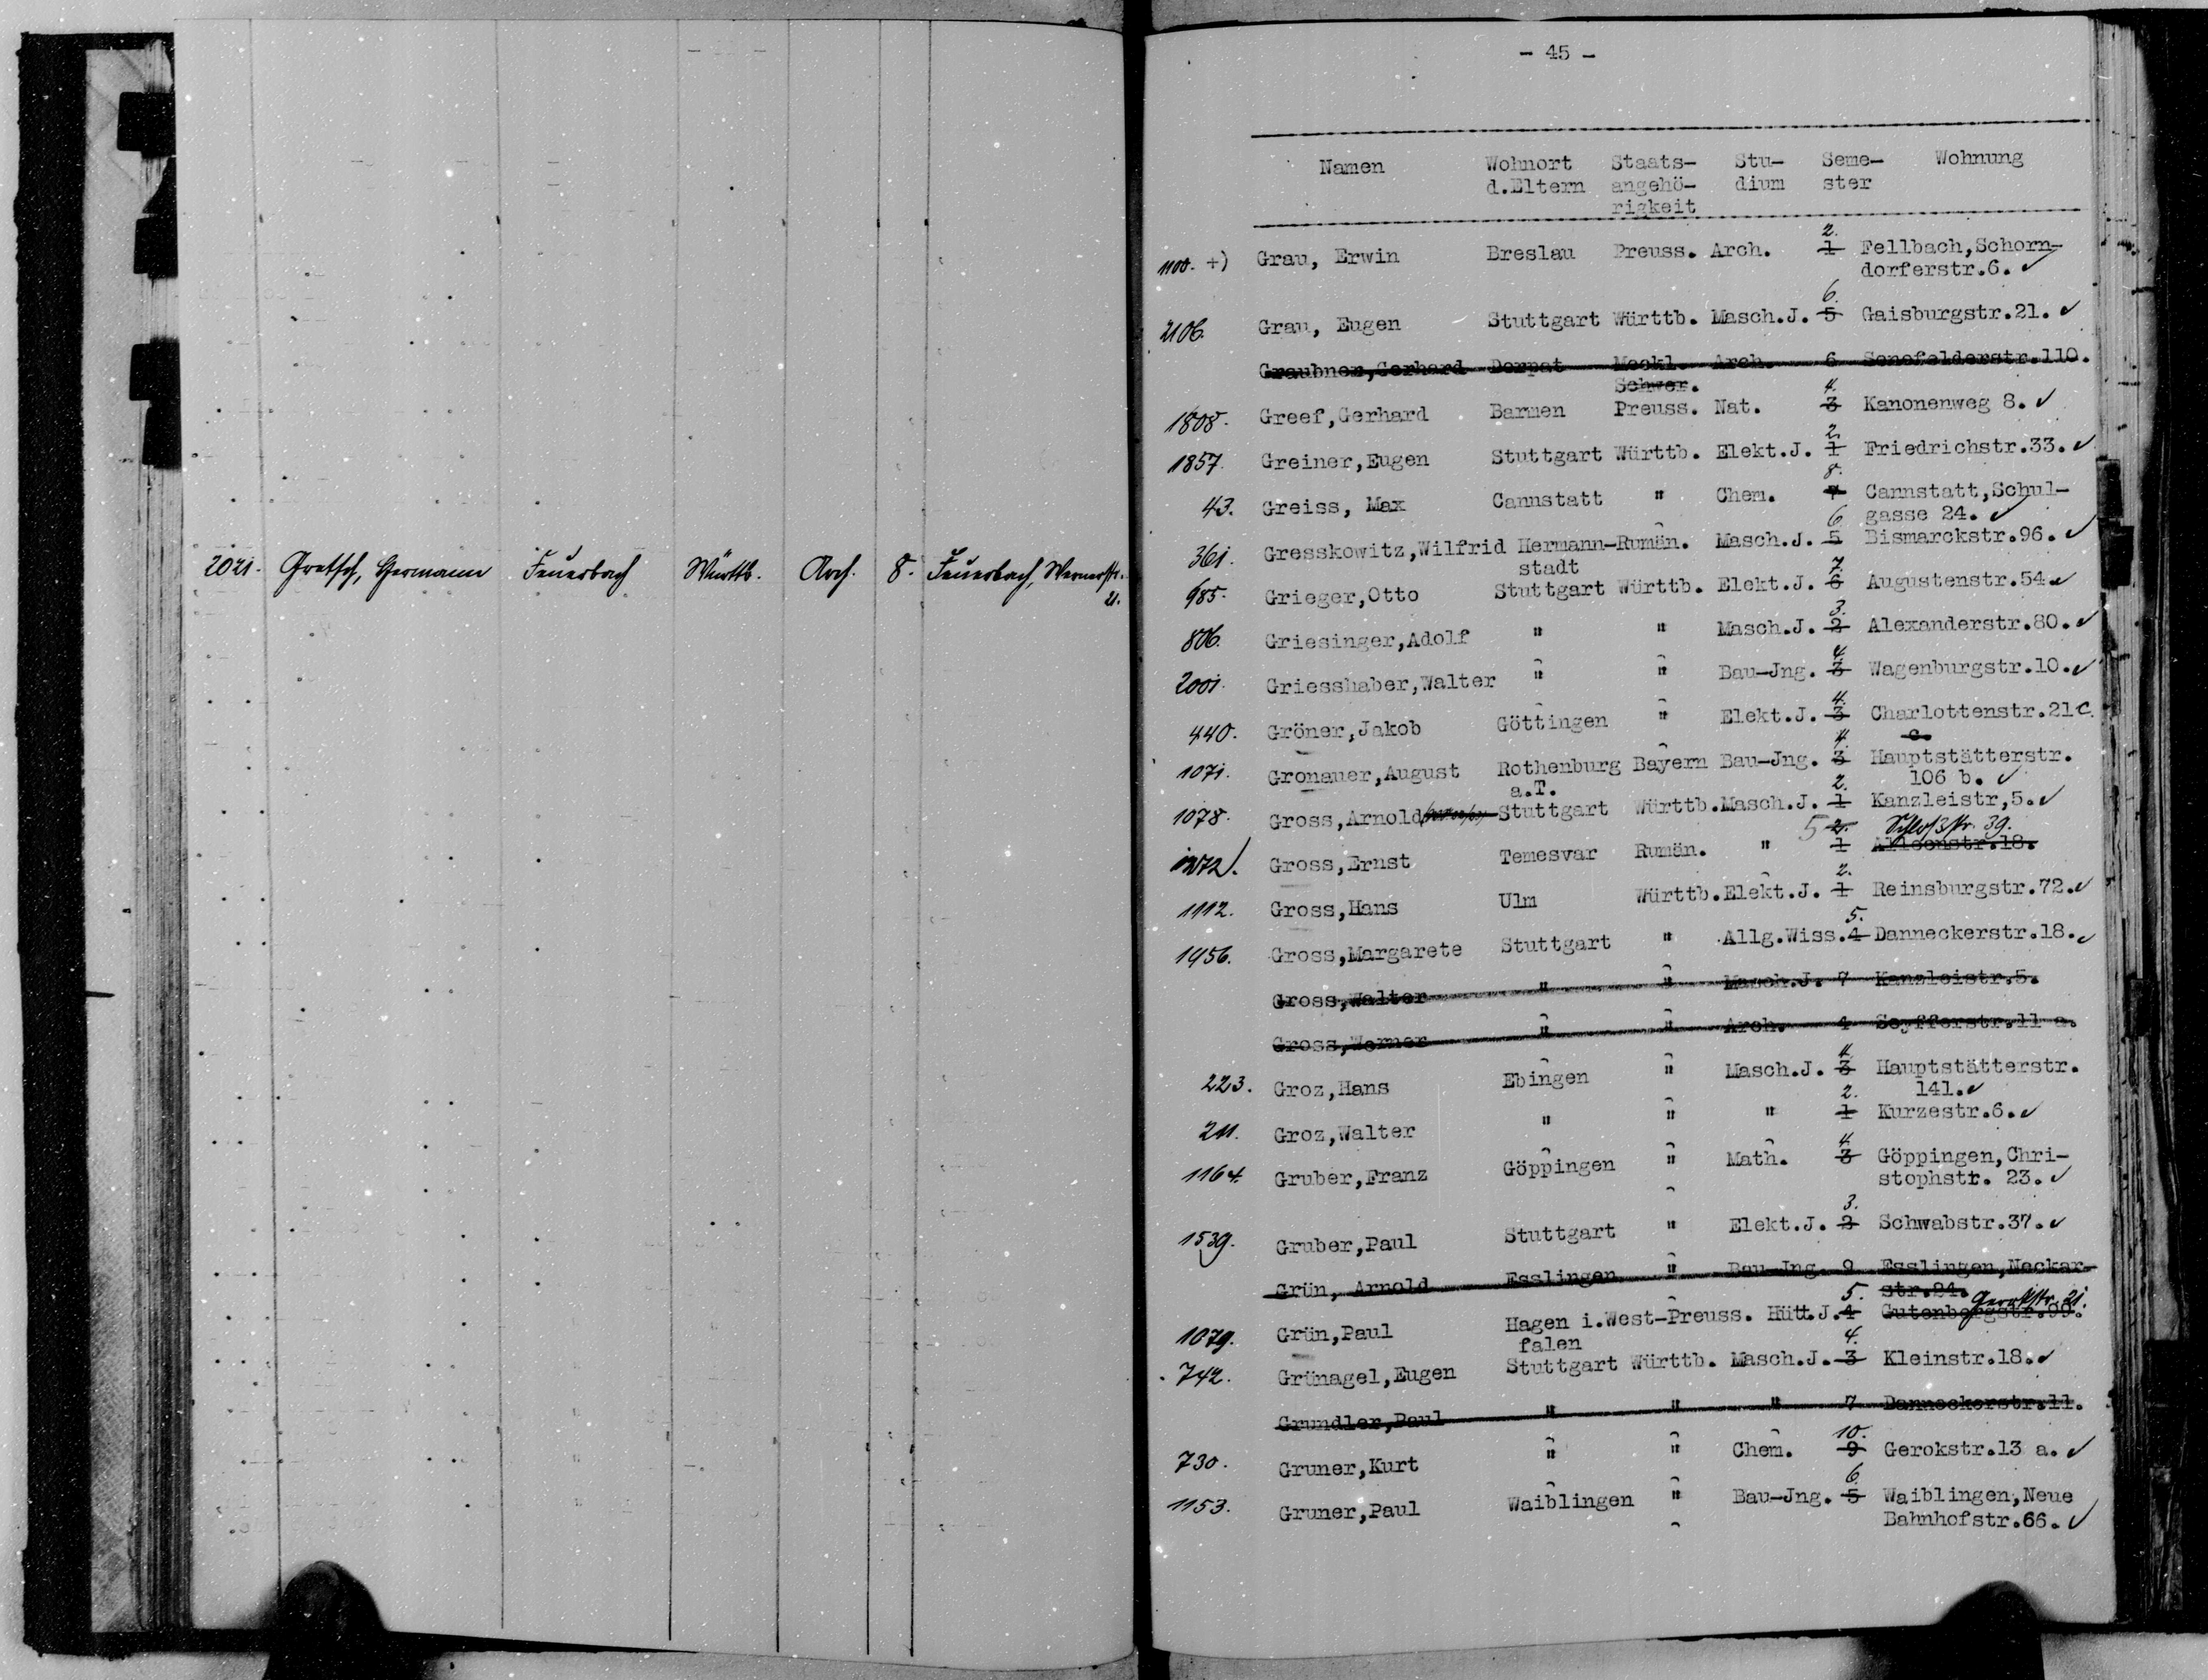 2021. Gretsch, Hermann Feuerbach Württb. Arch. 8. Feuerbach, Wernerstr.
21.
- 45 -
Namen Wohnort Staats- Stu- Seme- Wohnung
d.Eltern angehö- dium ster
rigkeit
2.
1100. +) Grau, Erwin Breslau Preuss. Arch. 1 Fellbach,Schorn-
dorferstr.6. ✓
6.
2106. Grau, Eugen Stuttgart Württb. Masch.J. 5 Gaisburgstr.21. ✓
Graubner,Gerhard Dorpat Meckl. Arch. 6 Senefelderstr.110.
Schwer.
4.
1808. Greef,Gerhard Barmen Preuss. Nat. 3 Kanonenweg 8. ✓
2.
1857. Greiner,Eugen Stuttgart Württb. Elekt.J. 1 Friedrichstr.33. ✓
8.
43. Greiss, Max Cannstatt " Chem. 7 Cannstatt,Schul-
gasse 24. ✓
6.
361. Gresskowitz,Wilfrid Hermann-Rumän. Masch.J. 5 Bismarckstr.96. ✓
stadt
7.
685. Grieger,Otto Stuttgart Württb. Elekt.J. 6 Augustenstr.54. ✓
3.
806. Griesinger,Adolf " " Masch.J. 2 Alexanderstr.80. ✓
4.
2001. Griesshaber,Walter " " Bau-Jng. 3 Wagenburgstr.10. ✓
4.
440. Gröner,Jakob Göttingen " Elekt.J. 3 Charlottenstr.21c.
c.
4.
1071. Gronauer,August Rothenburg Bayern Bau-Jng. 3 Hauptstätterstr.
a.T. 106 b. ✓
2.
1078. Gross,Arnold Stuttgart Württb.Masch.J. 1 Kanzleistr,5. ✓
5 2. Schloßstr. 39.
1272. Gross,Ernst Temesvar Rumän. " 1 Alleenstr.18.
2.
1112. Gross,Hans Ulm Württb.Elekt.J. 1 Reinsburgstr.72. ✓
5.
1956. Gross,Margarete Stuttgart " Allg.Wiss.4 Danneckerstr.18. ✓
Gross,Walter " " Masch.J. 7 Kanzleistr.5.
Gross,Werner " " Arch. 4 Seyfferstr.11 a.
4.
223. Groz,Hans Ebingen " Masch.J. 3 Hauptstätterstr.
141. ✓
2.
211. Groz,Walter " " " 1 Kurzestr.6. ✓
4.
1164. Gruber,Franz Göppingen " Math. 3 Göppingen,Chri-
stophstr. 23. ✓
3.
1539. Gruber,Paul Stuttgart " Elekt.J. 2 Schwabstr.37. ✓
Grün, Arnold Esslingen " Bau-Jng. 9 Esslingen,Neckar-
str.24.
5. Gerokstr. 21.
1079. Grün,Paul Hagen i.West-Preuss. Hütt.J.4 Gutenbergstr.90.
falen
4.
742. Grünagel,Eugen Stuttgart Württb. Masch.J. 3 Kleinstr.18. ✓
Grundler,Paul " " " 7 Danneckerstr.11.
10.
730. Gruner,Kurt " " Chem. 9 Gerokstr.13 a. ✓
6.
1153. Gruner,Paul Waiblingen " Bau-Jng. 5 Waiblingen,Neue
Bahnhofstr.66. ✓